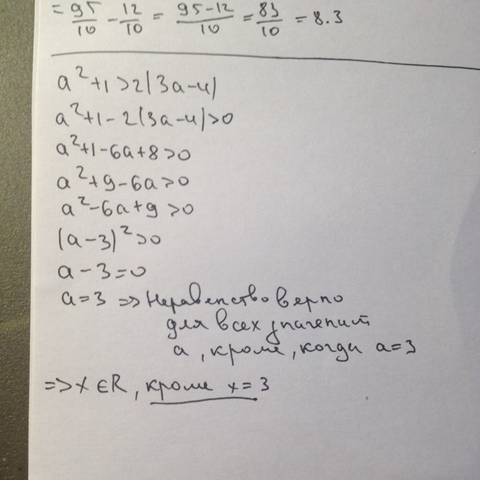 = 95/10 - 12/10 = 95-12/10 = 83/10 = 8.3
a²+1>2(3a-4)
a²+1-2(3a-4)>0
a²+1-6a+8>0
a²+9-6a>0
a²-6a+9>0
(a-3)²>0
a-3=0
a=3 => Неравенство верно
для всех значений
a, кроме, когда a=3
=> x∈R, кроме x=3